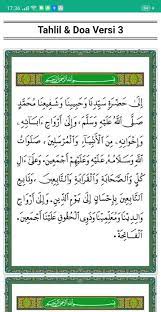 17.36
Tahlil & Doa Versi 3
إِلَى حَضْرَةِ سَيِّدِنَا وَحَبِيبِنَا وَشَفِيعِنَا مُحَمَّدٍ
صَلَّى اللهُ عَلَيْهِ وَسَلَّمَ، وَإِلَى أَرْوَاحِ آبَائِهِ،
وَإِخْوَانِهِ، مِنَ الْأَنْبِيَاءِ، وَالْمُرْسَلِينَ، صَلَوَاتُ
اللهِ وَسَلَامُهُ عَلَيْهِ وَعَلَيْهِمْ أَجْمَعِينَ. وَعَلَى آلِ
كُلٍّ وَالصَّحَابَةِ وَالْقَرَابَةِ وَالتَّابِعِينَ. وَتَابِعِ
التَّابِعِينَ بِإِحْسَانٍ إِلَى يَوْمِ الدِّينِ. وَإِلَى أَرْوَاحِ
وَالِدِينَا وَمُعَلِّمِينَا وَذَوِي الْحُقُوقِ عَلَيْنَا أَجْمَعِينَ.
الْفَاتِحَة.